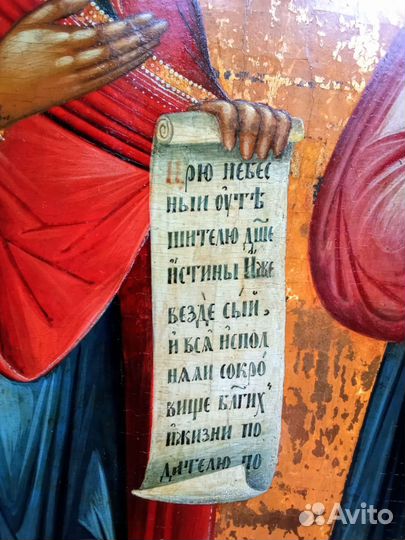 Црю небес
ныи оутѣ
шителю дш҃е
и҆стины И҆же
вездѐ сы́й,
и҆ всѧ̀ и҆спол
нѧли сокро́
више бл҃ги́х
и҆жизни по
дателю по
Avito